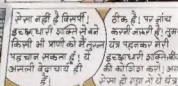 ऐसा नहीं है विसर्पी!
इच्छाधारी शक्ति से बने
किसी भी प्राणी को मैं तुरन्त
पहचान सकता हूं! ये
असली वेदाचार्य ही
हैं!
ठीक है! पर जांच
करनी जरूरी है! तुम
यंत्र पहनकर मेरी
इच्छाधारी शक्ति
की कोशिश करो!
ऐसा हो गया तो ये यंत्र